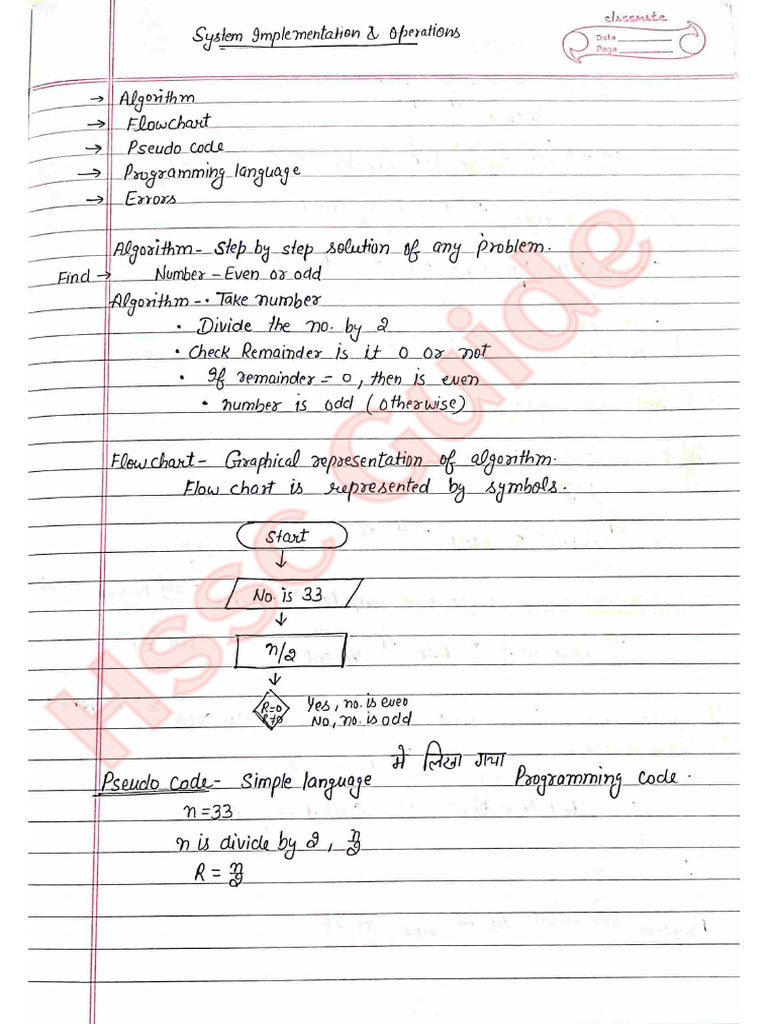 System Implementation & Operations
classmate
Date
Page
→ Algorithm
→ Flowchart
→ Pseudo code
→ Programming language
→ Errors
Algorithm - Step by step solution of any problem.
Find → Number - Even or odd
Algorithm - • Take number
• Divide the no. by 2
• Check Remainder is it 0 or not
• If remainder = 0, then is even
• number is odd (otherwise)
Flowchart - Graphical representation of algorithm.
Flow chart is represented by symbols.
Start
↓
No. is 33
↓
n/2
↓
R=0 Yes, no. is even
R≠0 No, no. is odd
Pseudo code - Simple language में लिखा गया Programming code.
n=33
n is divide by 2, n/2
R = n/2
Hssc Guide